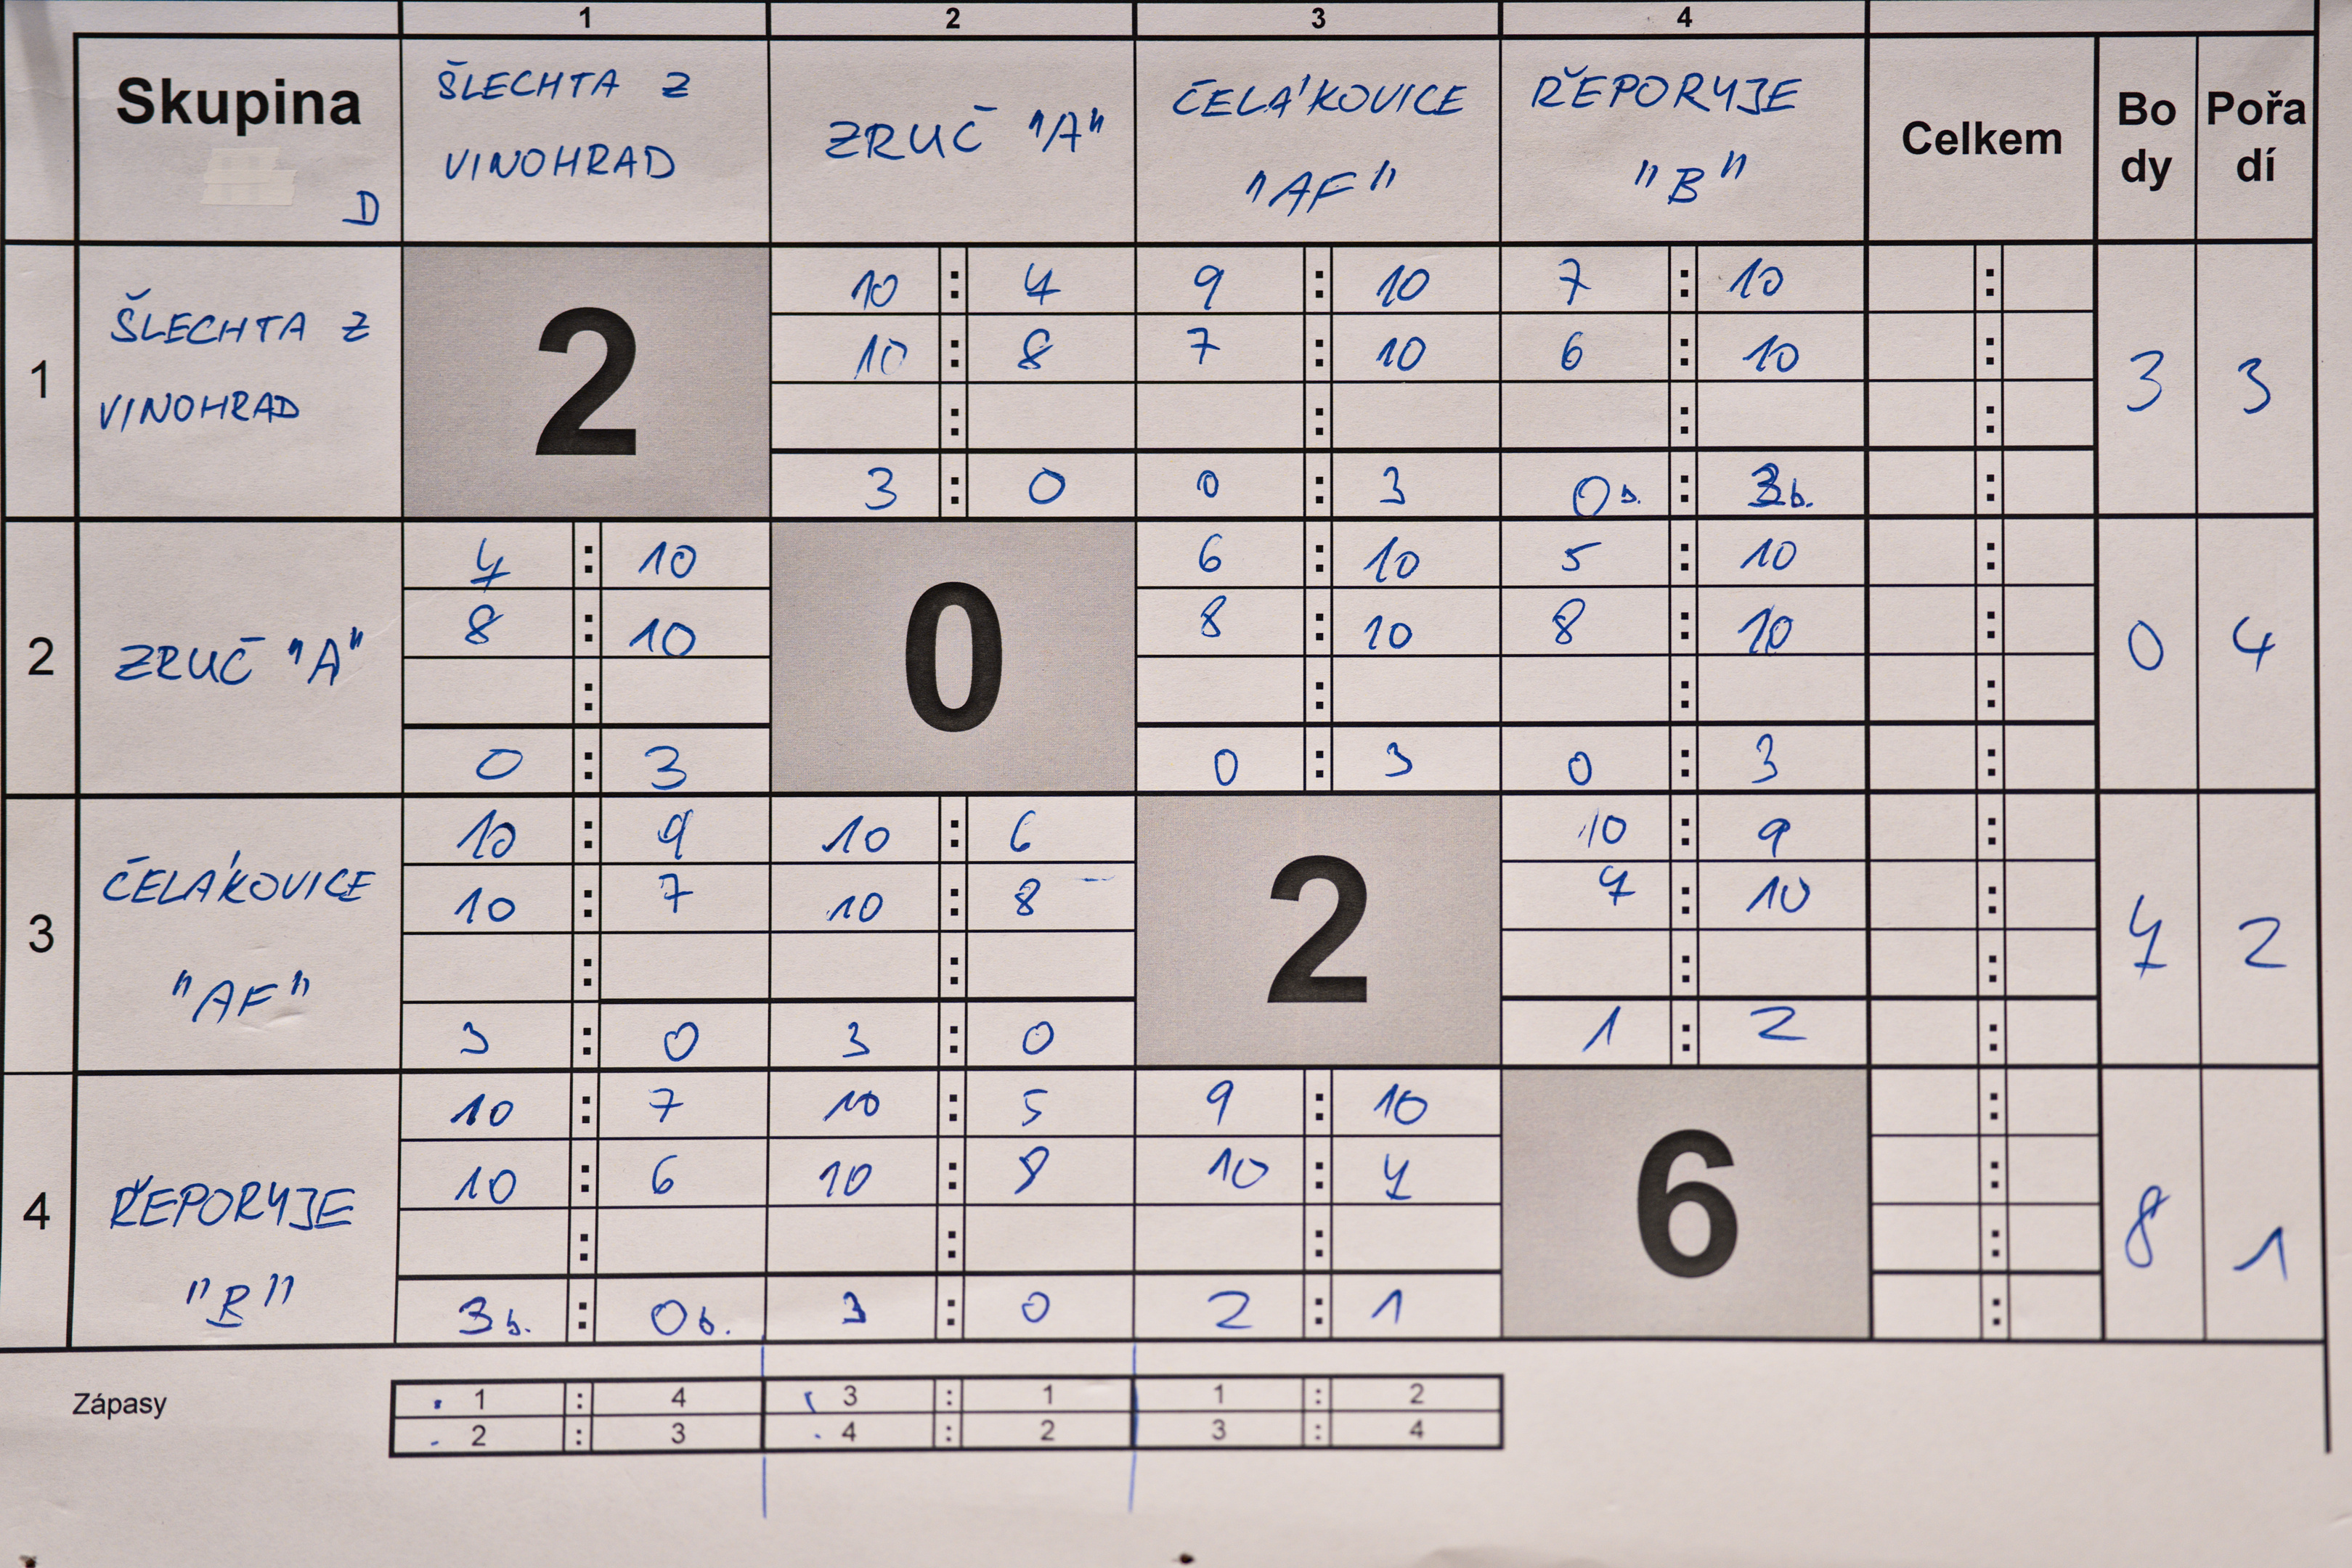 1 2 3 4
Skupina D
ŠLECHTA Z
VINOHRAD
ZRUČ "A"
ČELÁKOVICE
"AF"
ŘEPORYJE
"B"
Celkem
Bo
dy
Pořa
dí
1
ŠLECHTA Z
VINOHRAD
2
10 : 4 9 : 10 7 : 10 :
10 : 8 7 : 10 6 : 10 :
: : : :
3 : 0 0 : 3 0b. : 3b. :
3 3
2
ZRUČ "A"
4 : 10 0 6 : 10 5 : 10 :
8 : 10 8 : 10 8 : 10 :
: : : :
0 : 3 0 : 3 0 : 3 :
0 4
3
ČELÁKOVICE
"AF"
10 : 9 10 : 6 2 10 : 9 :
10 : 7 10 : 8 4 : 10 :
: : : :
3 : 0 3 : 0 1 : 2 :
4 2
4
ŘEPORYJE
"B"
10 : 7 10 : 5 9 : 10 6 :
10 : 6 10 : 8 10 : 4 :
: : : :
3b. : 0b. 3 : 0 2 : 1 :
8 1
Zápasy
1 : 4 3 : 1 1 : 2
2 : 3 4 : 2 3 : 4